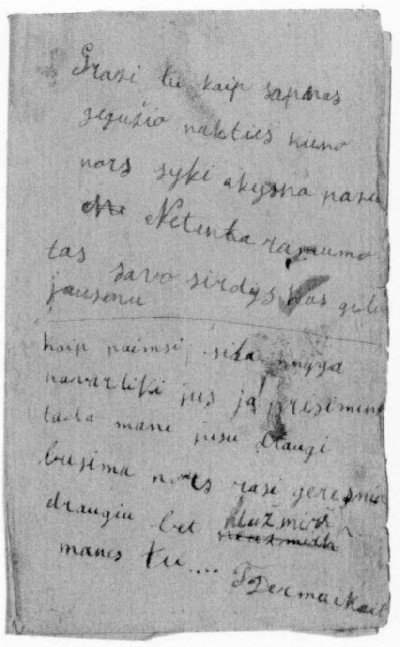 Grasi tu kaip sapnas
gegužio nakties kieno
nors syki akysna pazu
Netenka ramumo
tas savo sirdys kas gili
jausmu
kaip paimsi, sita knyga
navartiki jus ja presimink
tada mani jusu draugi
busima nors rasi geresniu
draugiu bet neuzmirsk
neuzmirsk
manes tu....